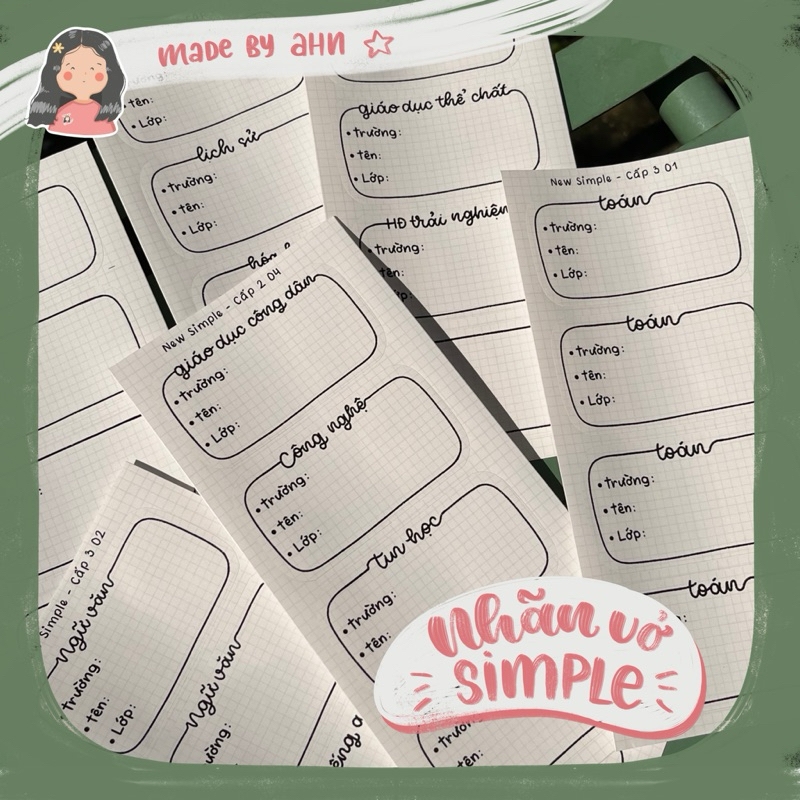 MADE BY AHN
tên:
Lớp:
lịch sử
trường:
tên:
Lớp:
hóa
giáo dục thể chất
trường:
tên:
Lớp:
HĐ trải nghiệm
trường:
tên:
Lớp:
New Simple - Cấp 3 01
toán
trường:
tên:
Lớp:
toán
trường:
tên:
Lớp:
toán
trường:
tên:
Lớp:
toán
New Simple - Cấp 2 04
giáo dục công dân
trường:
tên:
Lớp:
Công nghệ
trường:
tên:
Lớp:
tin học
trường:
tên:
trường:
tên:
Simple - Cấp 3 02
Ngữ văn
trường:
tên:
Lớp:
Ngữ văn
Nhãn vở
SIMPLE